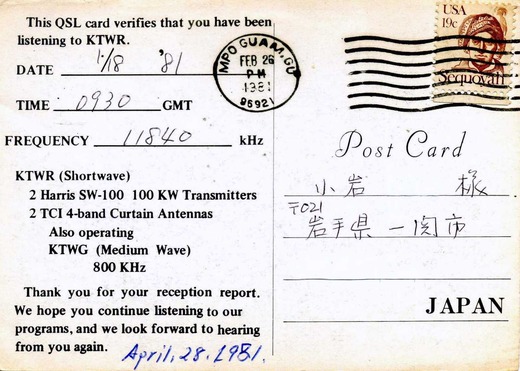 This QSL card verifies that you have been
listening to KTWR.
DATE 1/18 '81
TIME : 0930 GMT
FREQUENCY 11840 kHz
KTWR (Shortwave)
2 Harris SW-100 100 KW Transmitters
2 TCI 4-band Curtain Antennas
Also operating
KTWG (Medium Wave)
800 KHz
Thank you for your reception report.
We hope you continue listening to our
programs, and we look forward to hearing
from you again.
April. 28. 1981.
MPO GUAM, GU
FEB 26
PM
1981
96921
USA
19c
Sequoyah
Post Card
小岩 様
〒021
岩手県一関市
JAPAN